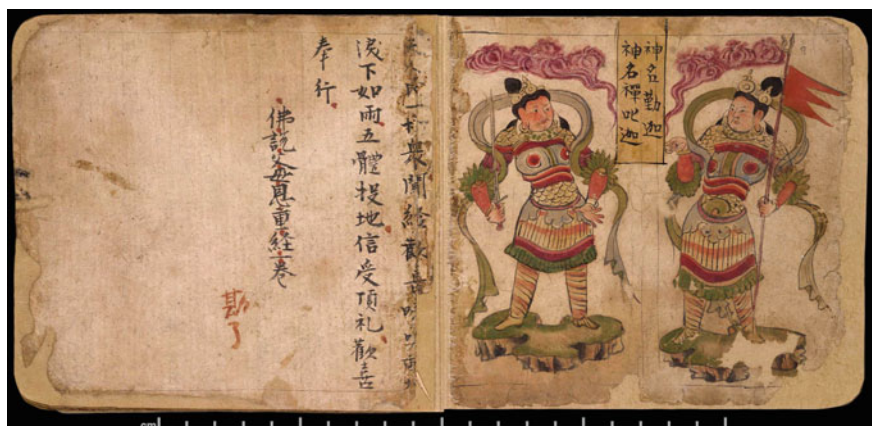 神名勤迦
神名禪吒迦
一切衆聞經歡喜
淚下如雨五體投地信受頂礼歡喜
奉行
佛說父母恩重経一卷
勘了
cm